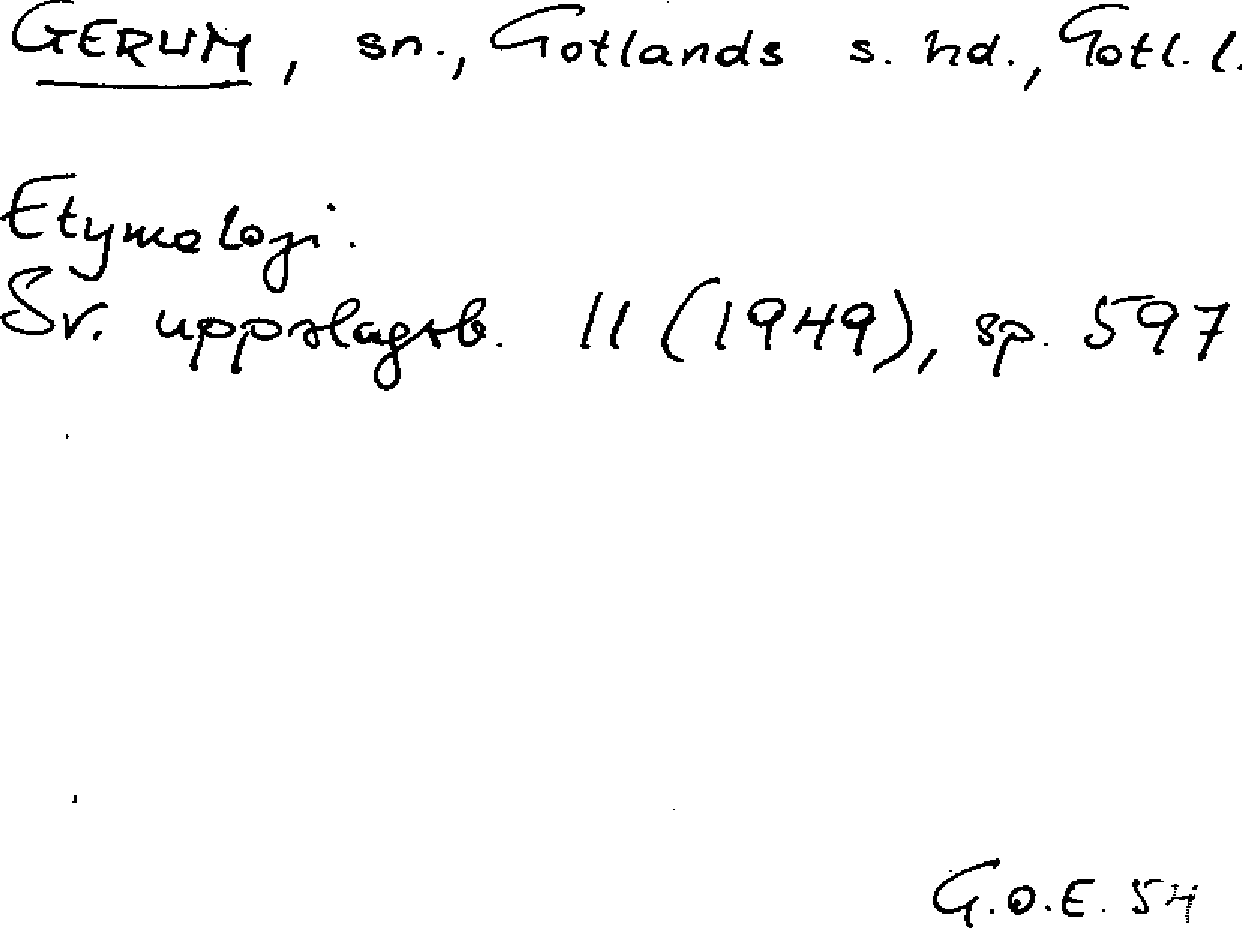 GERUM, sn., Gotlands s. hd., Gotl. l.
Etymologi.
Sv. uppslagsb. 11 (1949), sp. 597
G.O.E. 54